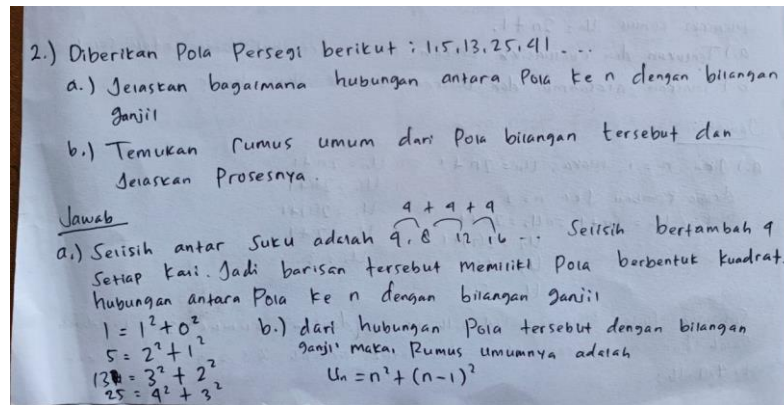 2.) Diberikan Pola Persegi berikut : 1,5,13,25,41 ...
a.) Jelaskan bagaimana hubungan antara Pola ke n dengan bilangan
ganjil
b.) Temukan rumus umum dari Pola bilangan tersebut dan
Jelaskan Prosesnya.
Jawab
4 + 4 + 4
a.) Selisih antar suku adalah 4, 8 12 16 ... Selisih bertambah 4
Setiap kali. Jadi barisan tersebut memiliki Pola berbentuk kuadrat.
hubungan antara Pola ke n dengan bilangan ganjil
1 = 1² + 0²
5 = 2² + 1²
13 = 3² + 2²
25 = 4² + 3²
b.) dari hubungan Pola tersebut dengan bilangan
ganjil maka, Rumus umumnya adalah
Un = n² + (n-1)²